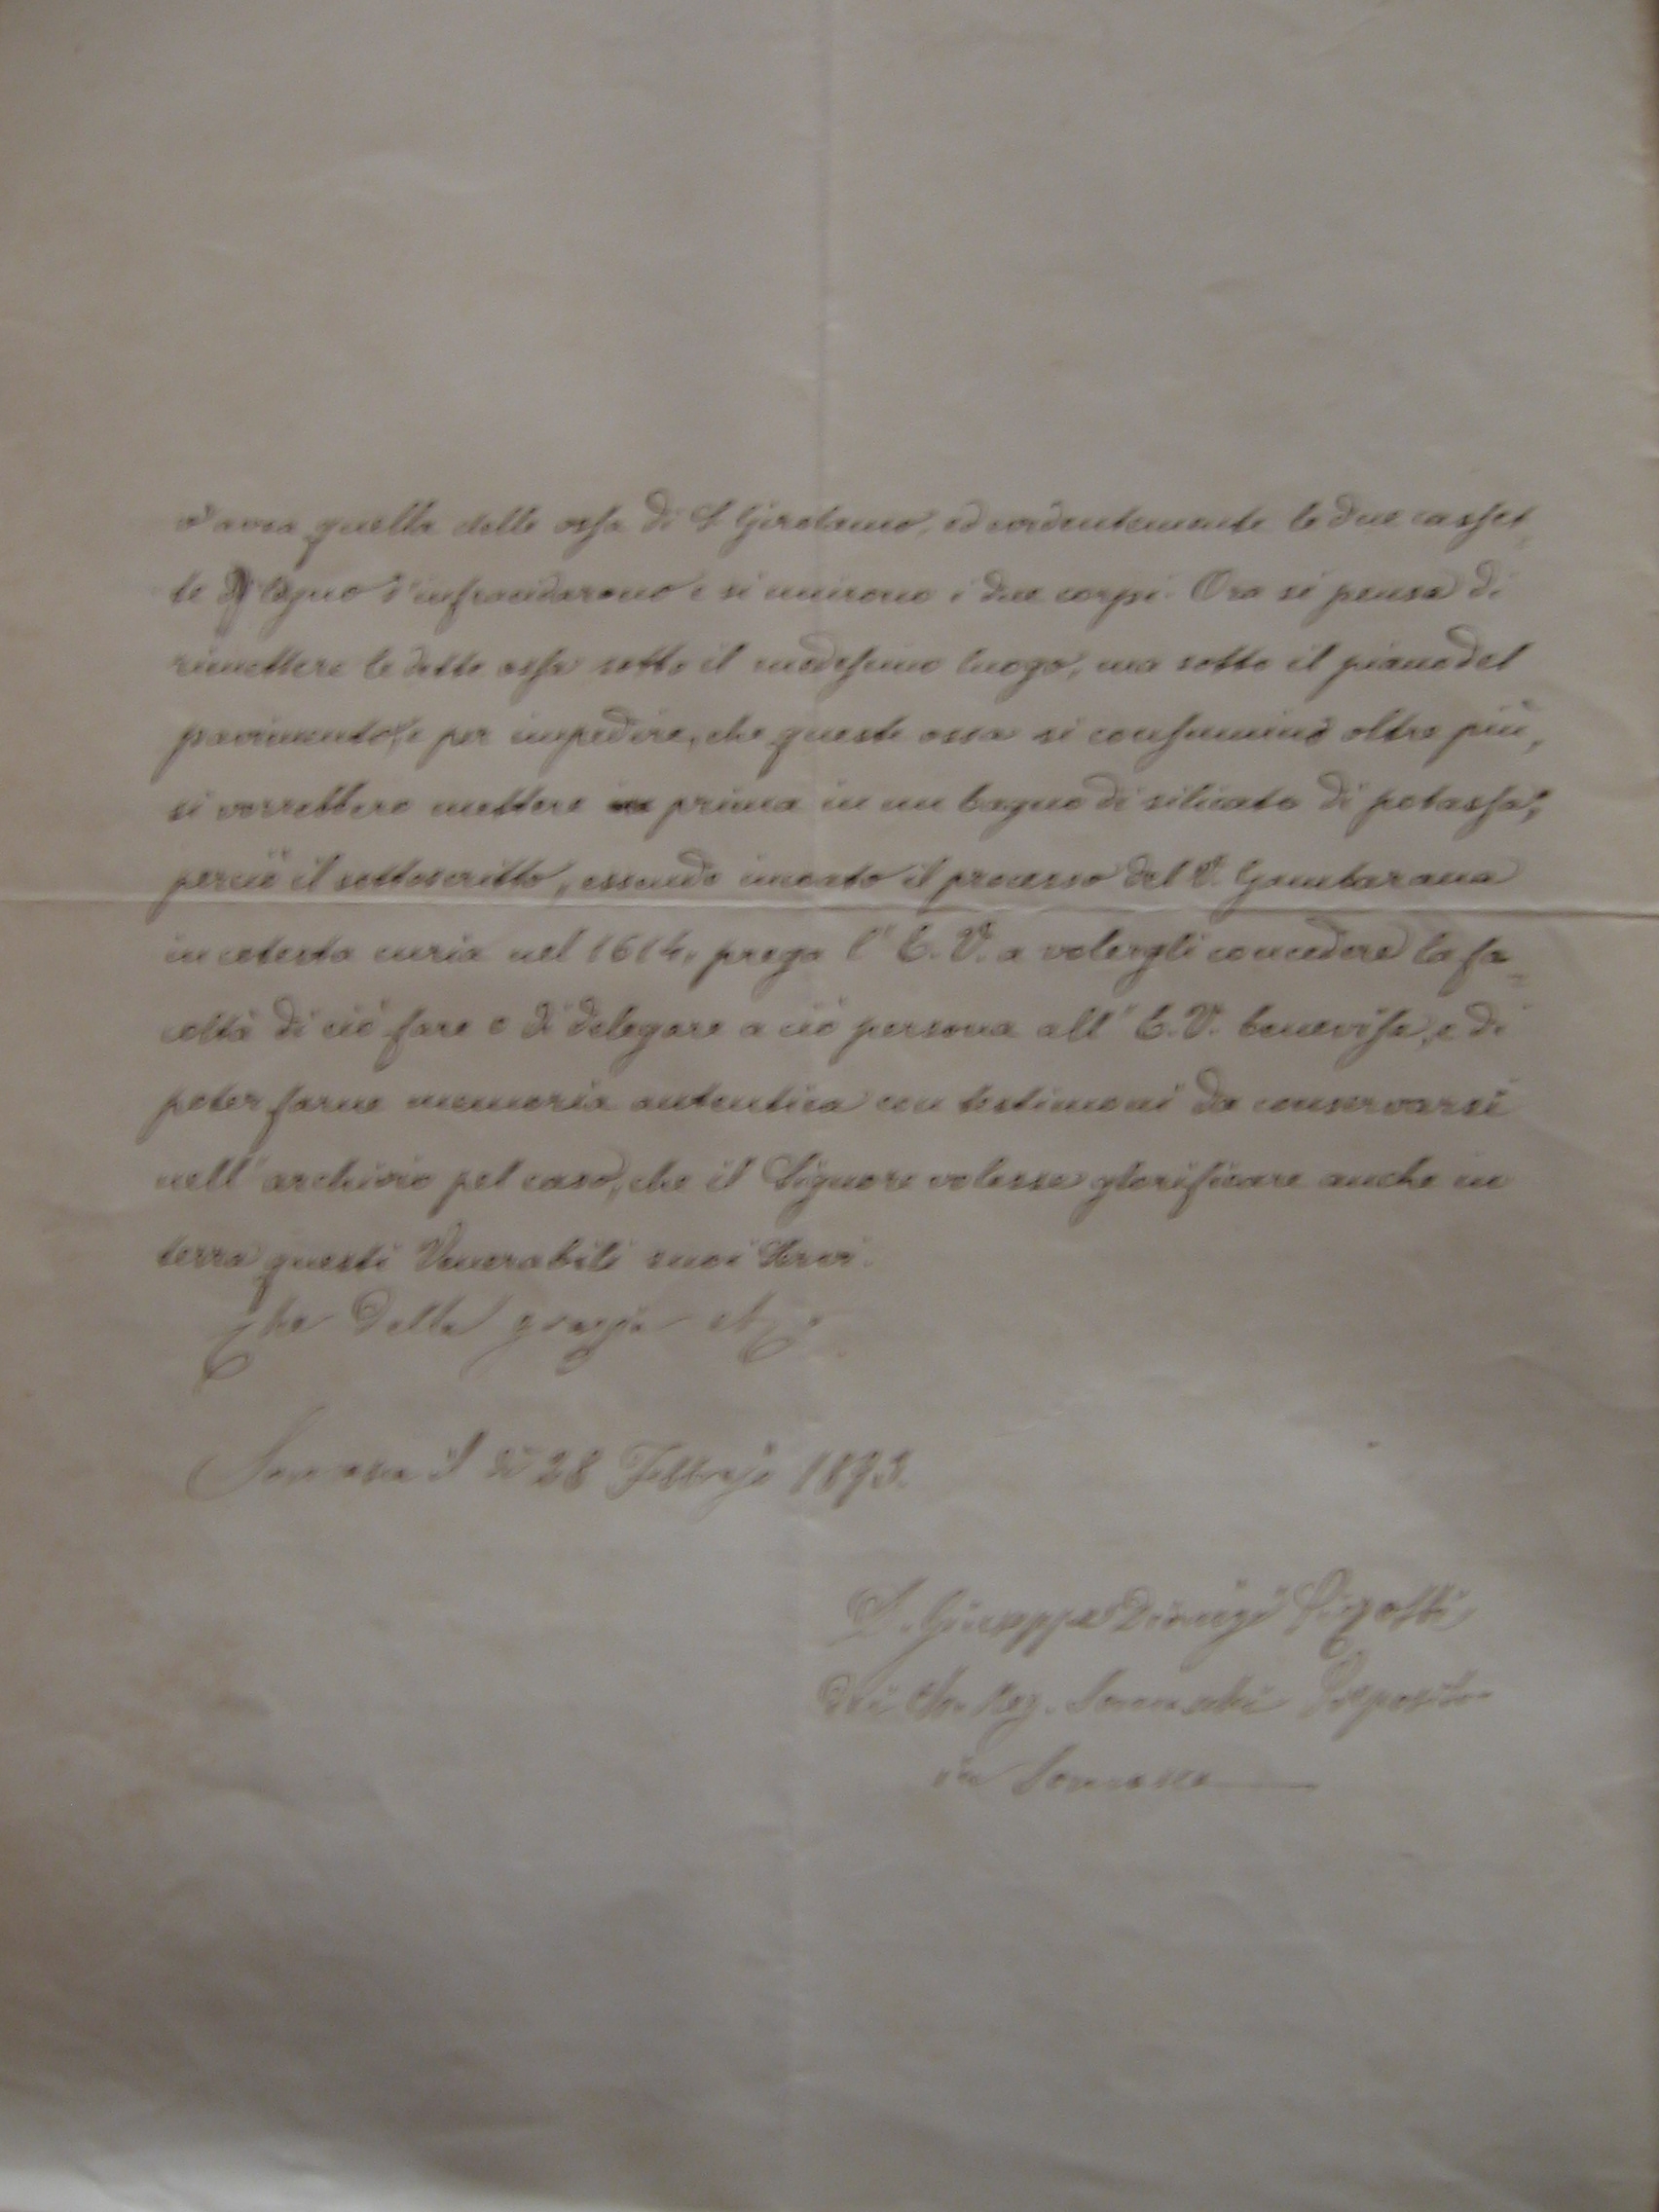 v'avea quella delle ossa di S. Girolamo, ed evidentemente le due casset-
te di legno s'infracidarono e si unirono i due corpi. Ora si pensa di
rimettere le dette ossa sotto il medesimo luogo, ma sotto il piano del
pavimento, e per impedire, che queste ossa si consumino oltre più,
si vorrebbero mettere prima in un bagno di silicato di potassa;
perciò il sottoscritto, essendo incoato il processo del V. Gambarana
in cotesta curia nel 1614, prega l'E. V. a volergli concedere la fa=
coltà di ciò fare o di delegare a ciò persona all'E. V. benevisa, e di
poter farne memoria autentica con testimoni da conservarsi
nell'archivio pel caso, che il Signore volesse glorificare anche in
terra questi Venerabili suoi Servi.
Che della grazia
Somasca il dì 28 Febbrajo 1893.
P. Giuseppe Dionigi Pizzotti
dei Ch. Reg. Somaschi Preposito
in Somasca